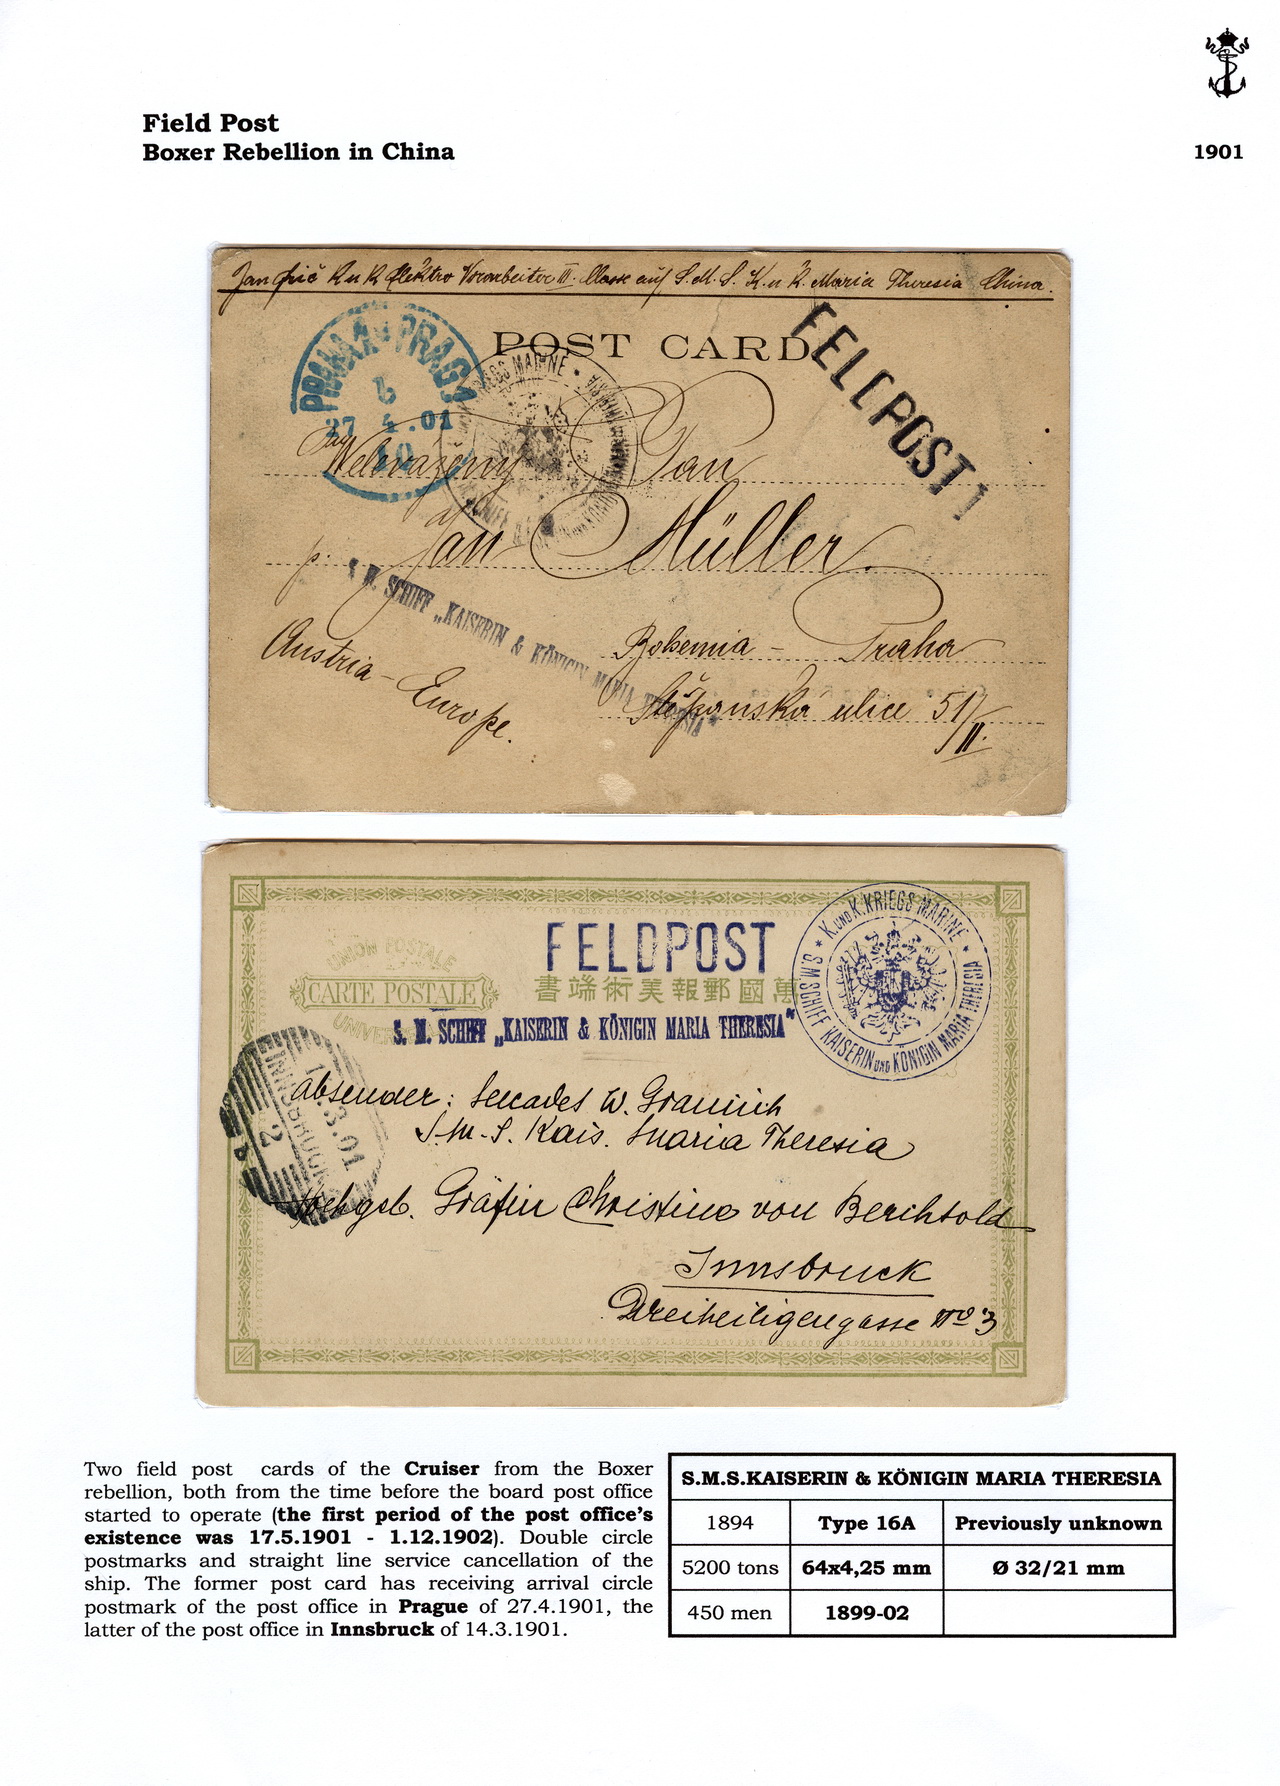 Field Post
Boxer Rebellion in China
1901
Jan K u K Elektro Vorarbeiter II. Classe auf S. M. S. K. u K. Maria Theresia China.
POST CARD
FELDPOST 1
PRAHA 1 PRAG 1
27 4.01
10
KRIEGS MARINE
SCHIFF
Pan
Jan Müller.
p.
S. M. SCHIFF „KAISERIN & KÖNIGIN MARIA THERESIA"
Austria - Europe.
Bohemia - Praha
Štěpanská ulice 51/II.
UNION POSTALE
CARTE POSTALE
UNIVER
FELDPOST
書端術美報郵國萬
S. M. SCHIFF „KAISERIN & KÖNIGIN MARIA THERESIA"
K. UND K. KRIEGS MARINE
S.M.SCHIFF KAISERIN UND KÖNIGIN MARIA THERESIA
INNSBRUCK
3.01
2
Absender: W.
S. M. S. Kais. Maria Theresia
Hochgeb. Gräfin Christine von Berchtold
Innsbruck
Dreiheiligengasse No 3
Two field post cards of the Cruiser from the Boxer
rebellion, both from the time before the board post office
started to operate (the first period of the post office's
existence was 17.5.1901 - 1.12.1902). Double circle
postmarks and straight line service cancellation of the
ship. The former post card has receiving arrival circle
postmark of the post office in Prague of 27.4.1901, the
latter of the post office in Innsbruck of 14.3.1901.
S.M.S.KAISERIN & KÖNIGIN MARIA THERESIA
1894 Type 16A Previously unknown
5200 tons 64x4,25 mm Ø 32/21 mm
450 men 1899-02